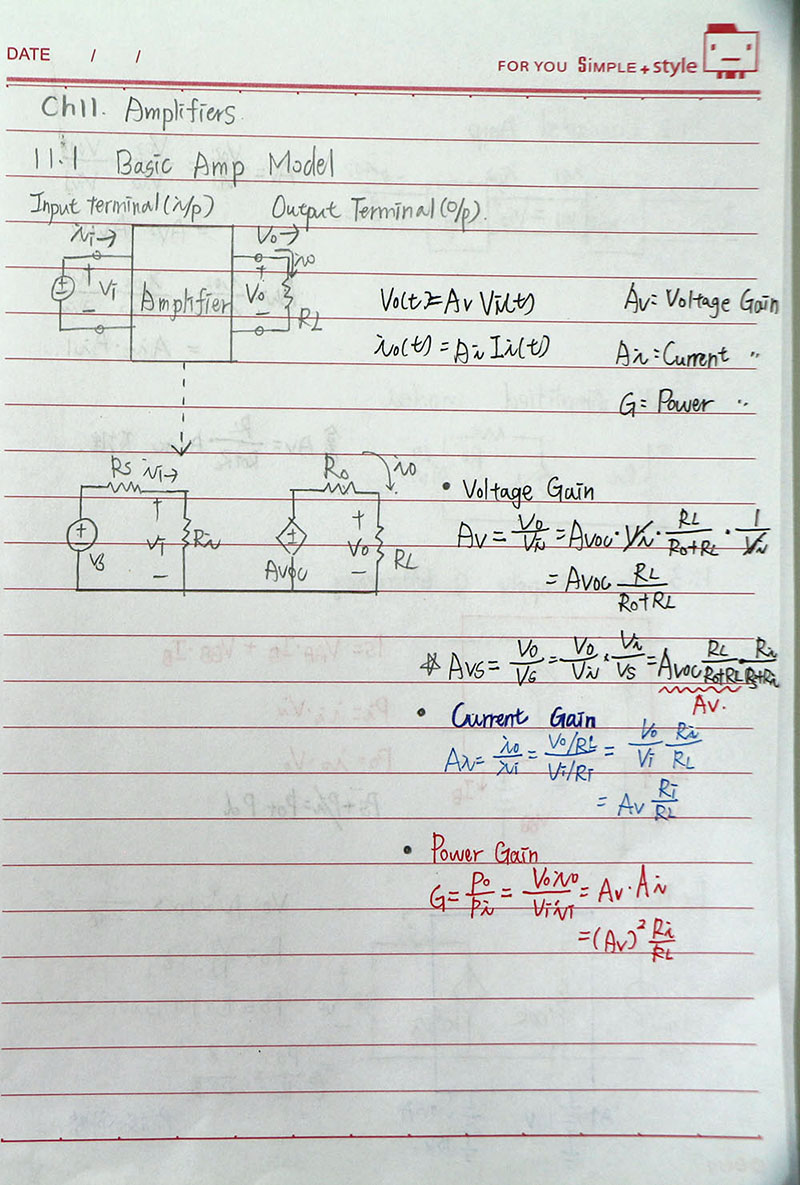 DATE / /
FOR YOU SiMPLE + style
Ch11. Amplifiers
11.1 Basic Amp Model
Input terminal (i/p) Output Terminal (o/p).
ii→ Vo→ io
+ Vi − Amplifier + Vo − RL
Vo(t) = Av Vi(t) Av = Voltage Gain
io(t) = Ai Ii(t) Ai = Current 〃
G = Power 〃
Rs ii→ Ro io
Vs + Vi − Ri Avoc + Vo − RL
• Voltage Gain
Av = Vo/Vi = Avoc · Vi · RL/(Ro+RL) · 1/Vi
= Avoc RL/(Ro+RL)
☆ Avs = Vo/Vs = Vo/Vi × Vi/Vs = Avoc RL/(Ro+RL) · Ri/(Rs+Ri)
Av.
• Current Gain
Ai = io/ii = (Vo/RL)/(Vi/Ri) = Vo/Vi Ri/RL
= Av Ri/RL
• Power Gain
G = Po/Pi = Vo io/Vi ii = Av · Ai
= (Av)² Ri/RL